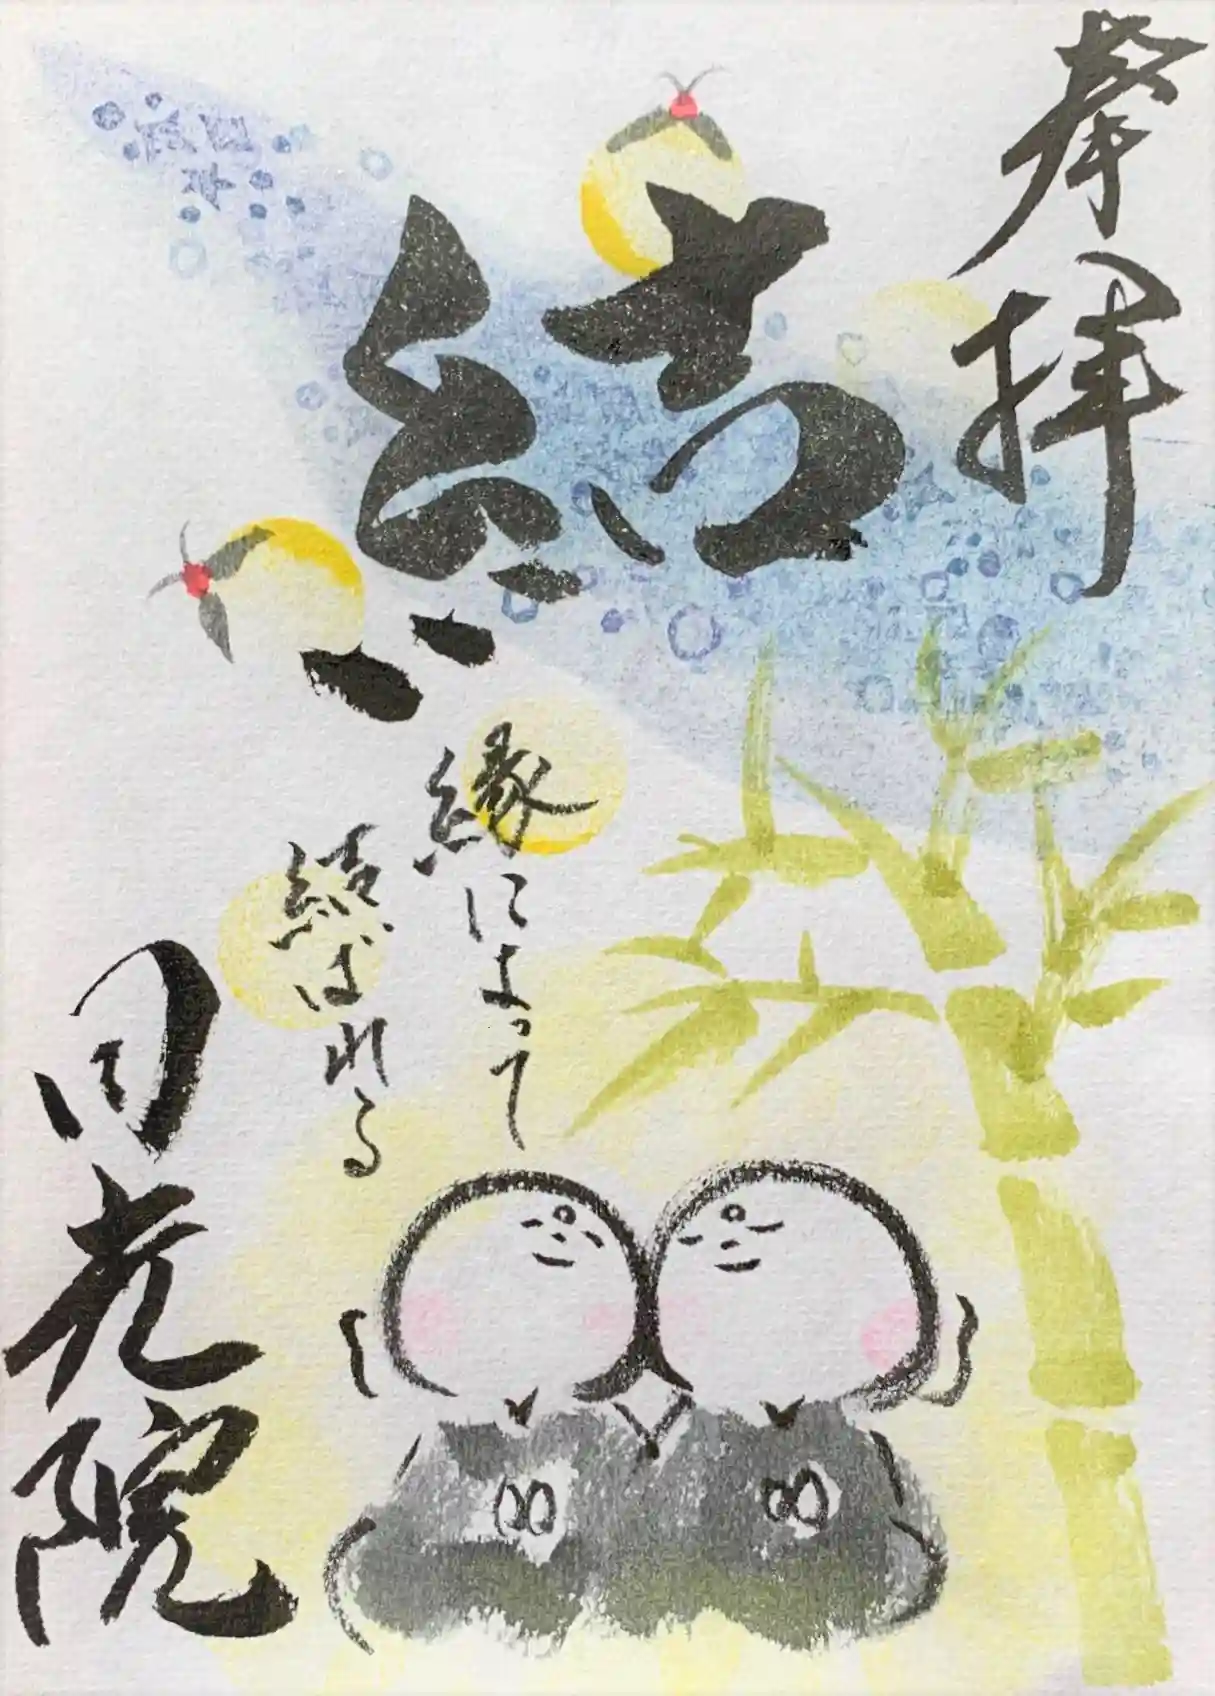 奉拝
結
縁によって
結ばれる
円光院